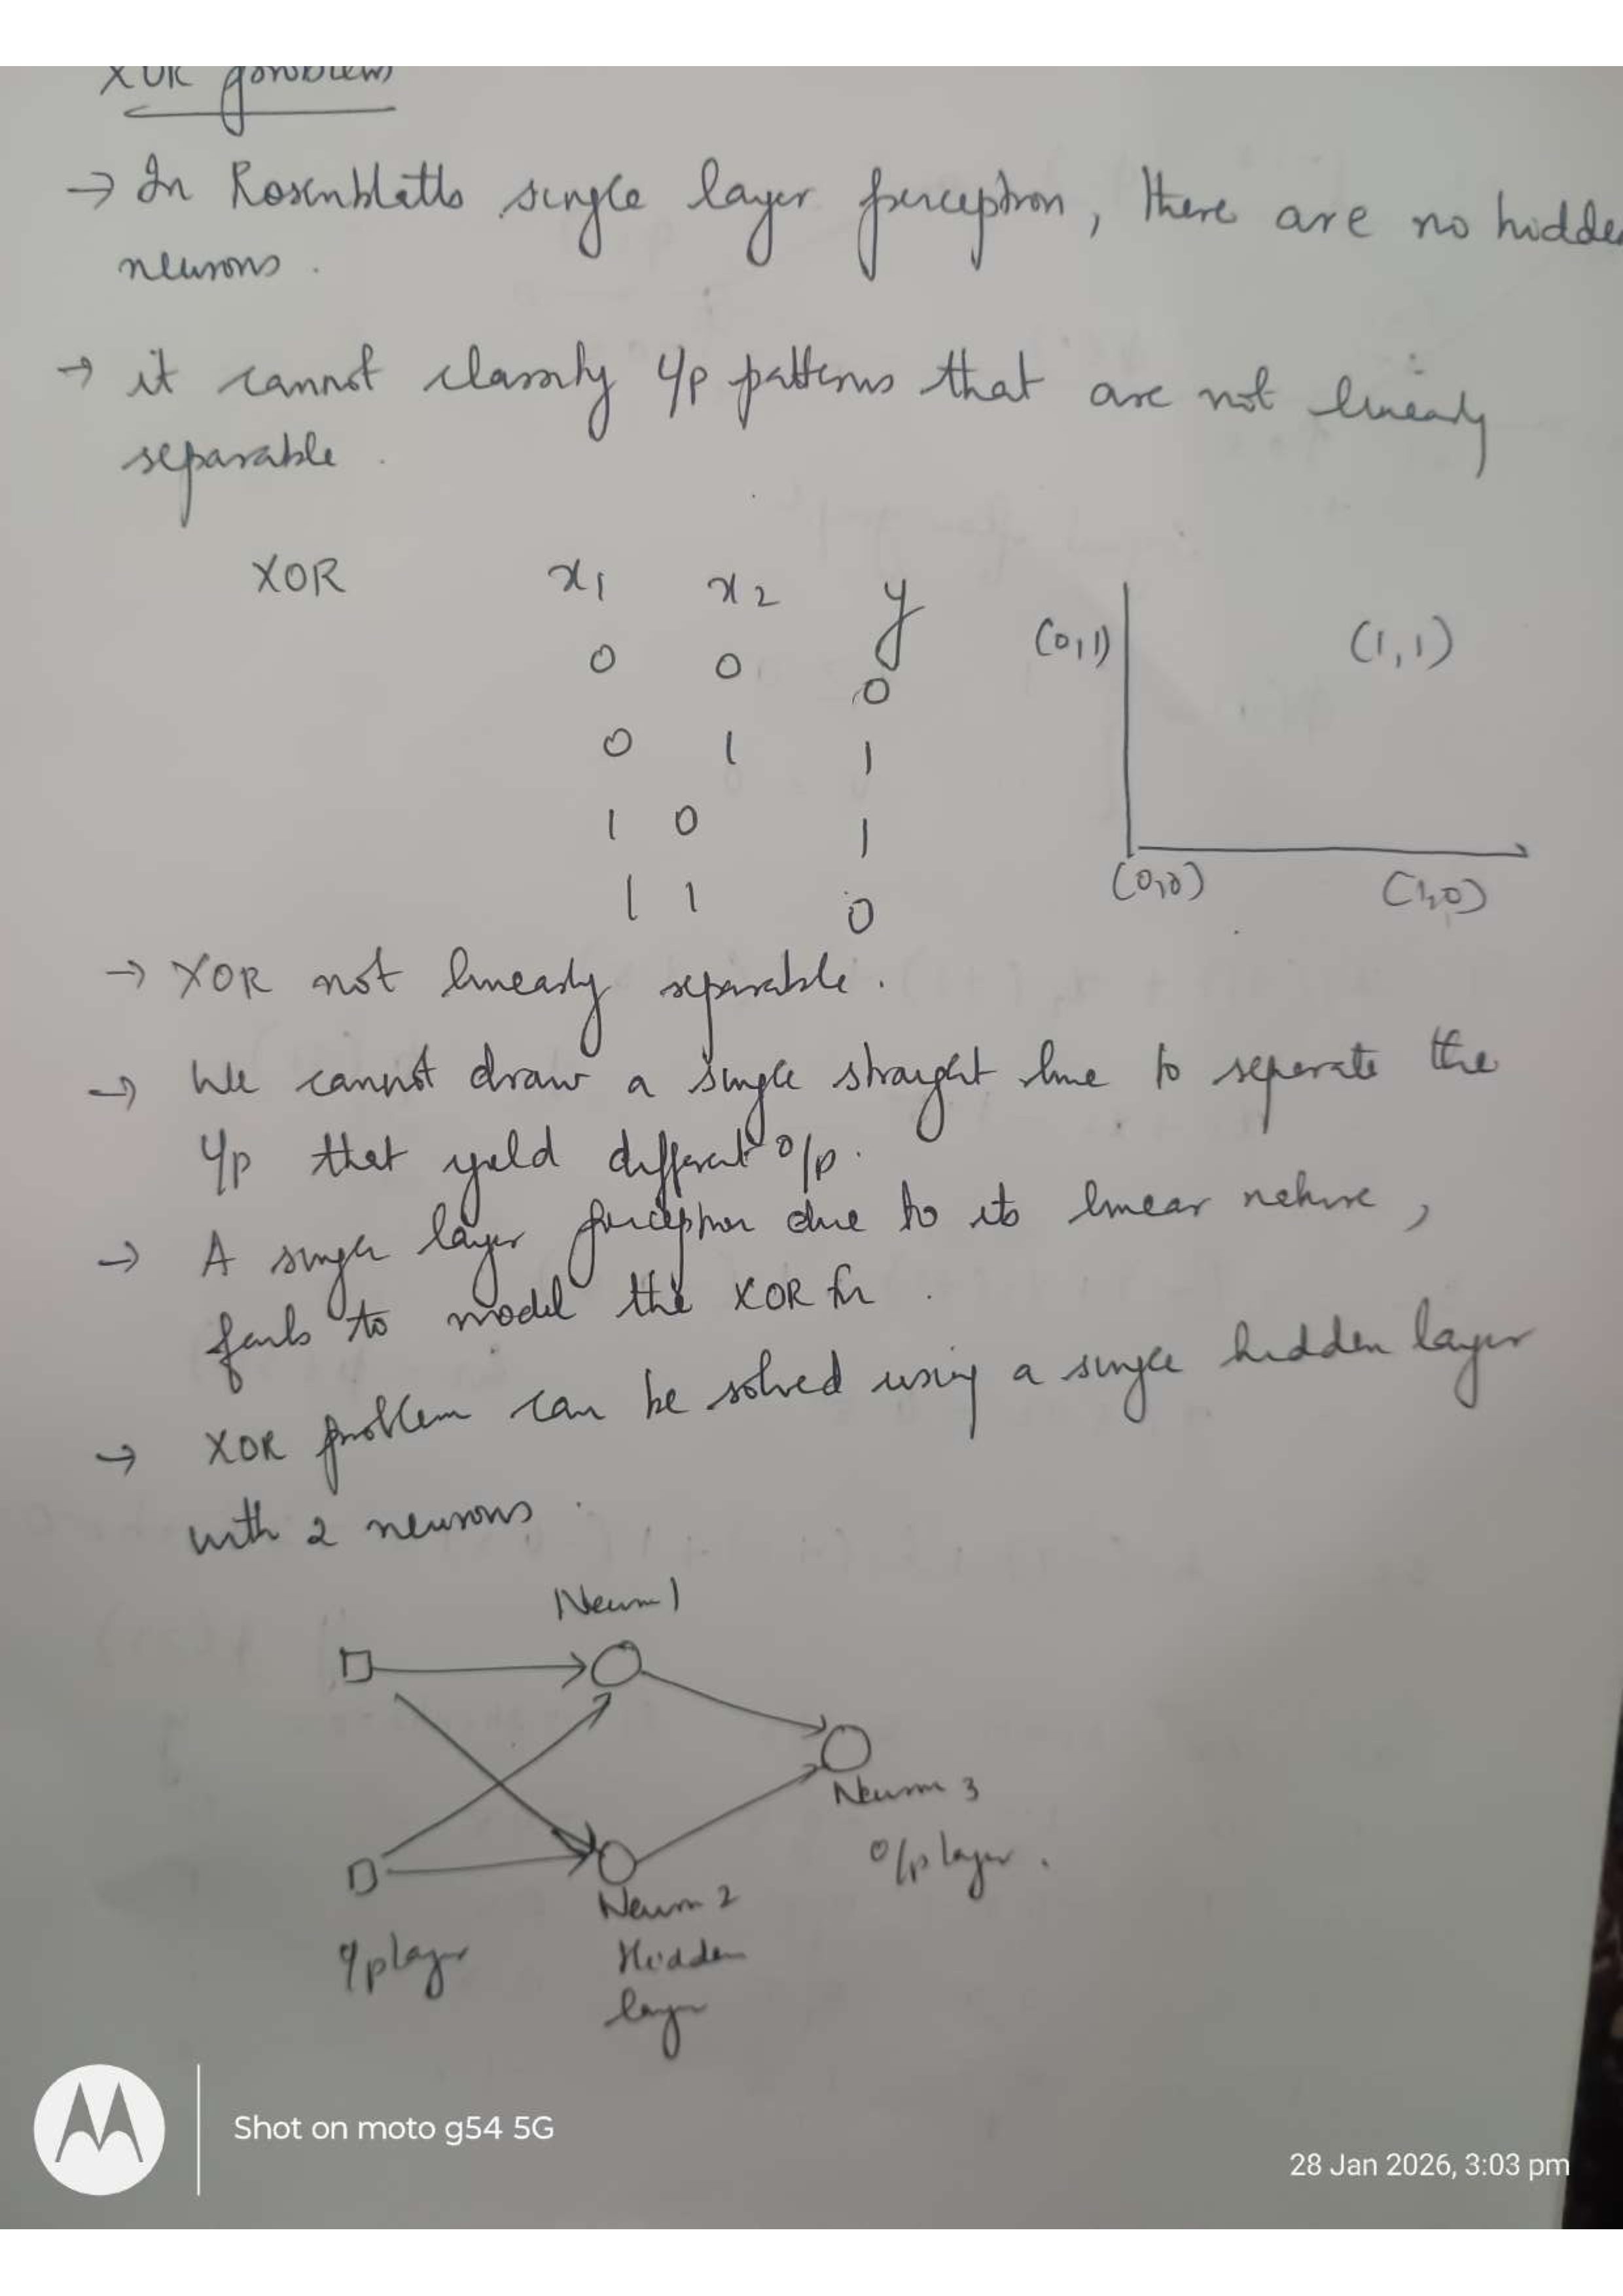 XOR problem
→ In Rosenblatts single layer perceptron, there are no hidden
neurons.
→ it cannot classify i/p patterns that are not linearly
separable.
XOR x1 x2 y
0 0 0
0 1 1
1 0 1
1 1 0
(0,1) (1,1)
(0,0) (1,0)
→ XOR not linearly separable.
→ We cannot draw a single straight line to seperate the
i/p that yeld different o/p.
→ A single layer perceptron due to its linear nature,
fails to model the XOR fn.
→ XOR problem can be solved using a single hidden layer
with 2 neurons.
Neuron 1
Neuron 3
o/p layer.
Neuron 2
i/p layer
Hidden
layer
Shot on moto g54 5G
28 Jan 2026, 3:03 pm